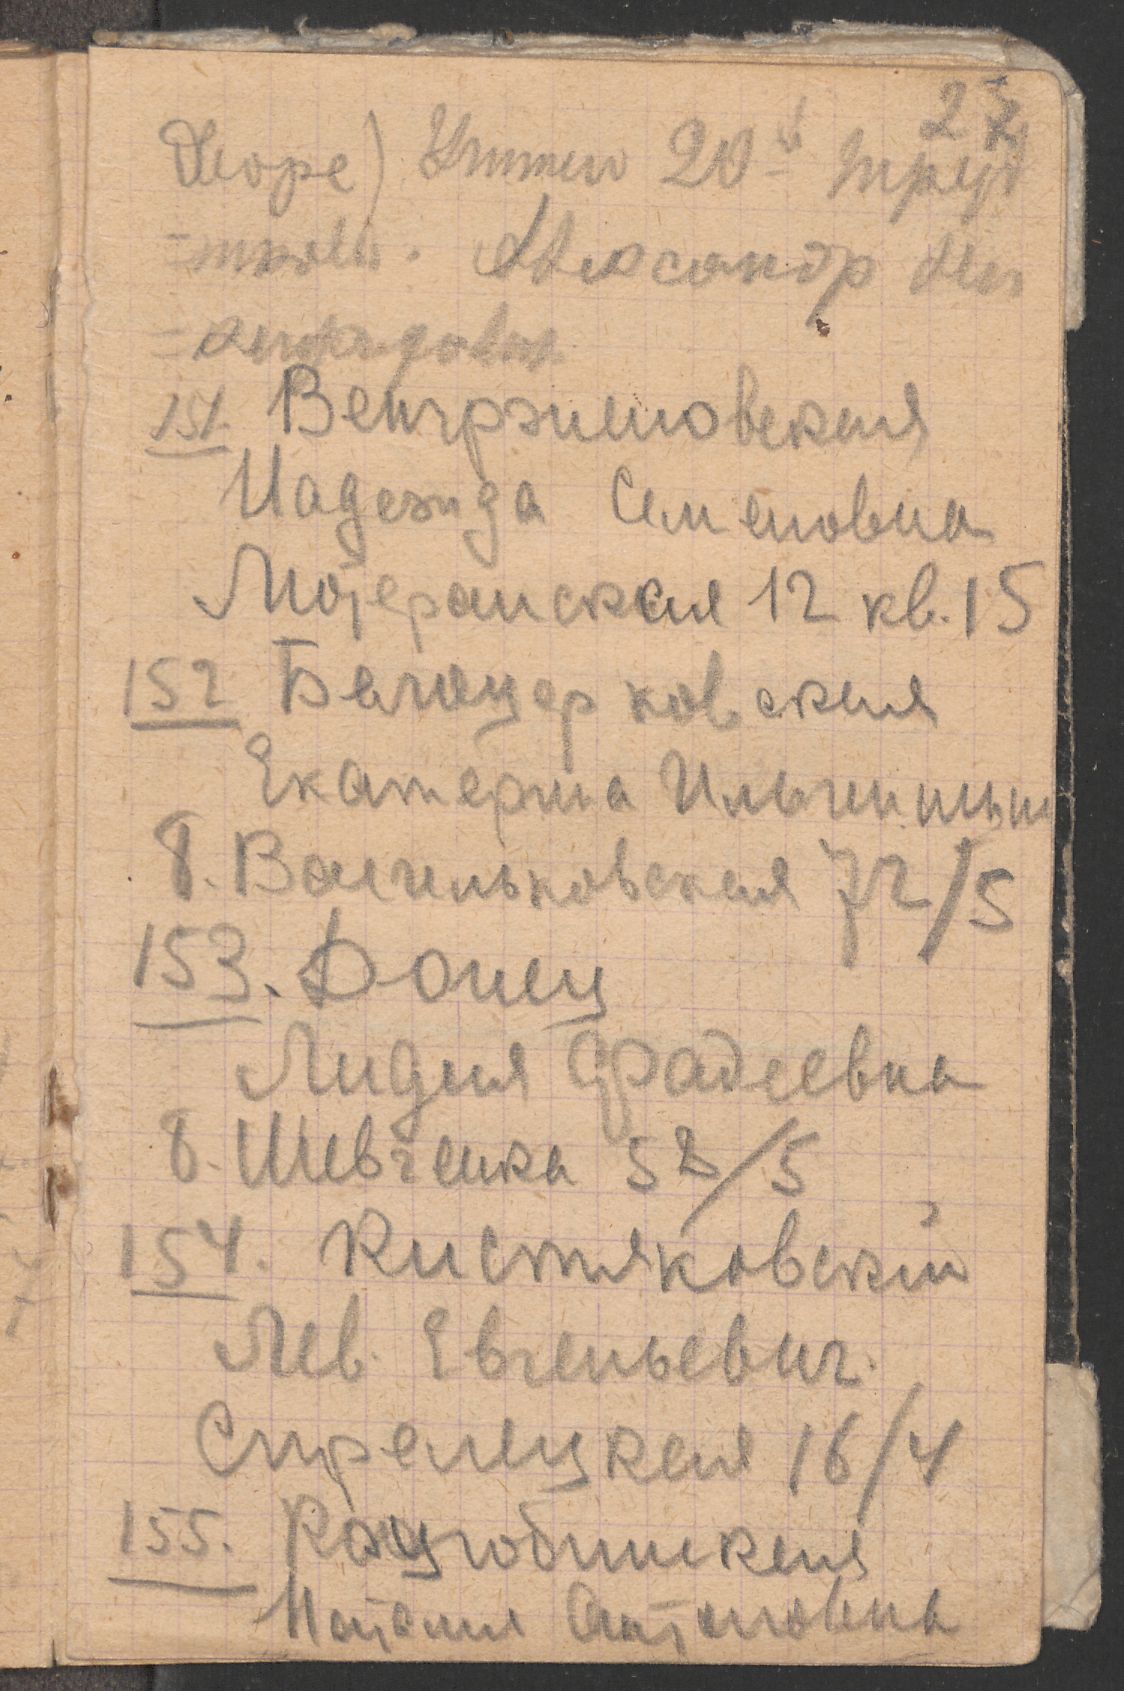 27
Море) Учит. 20й труд
=школы. Александр
151. Венгржиновская
Надежда Семеновна
Лютеранская 12 кв. 15
152 Белоцерковская
Екатерина Ильинишна
Б. Васильковская 72/5
153. Донец
Лидия Фадеевна
б. Шевченка 58/5
154. Кистяковский
Лев Евгеньевич.
Стрелецкая 16/4
155. Коцюбинская
Наталия Антоновна